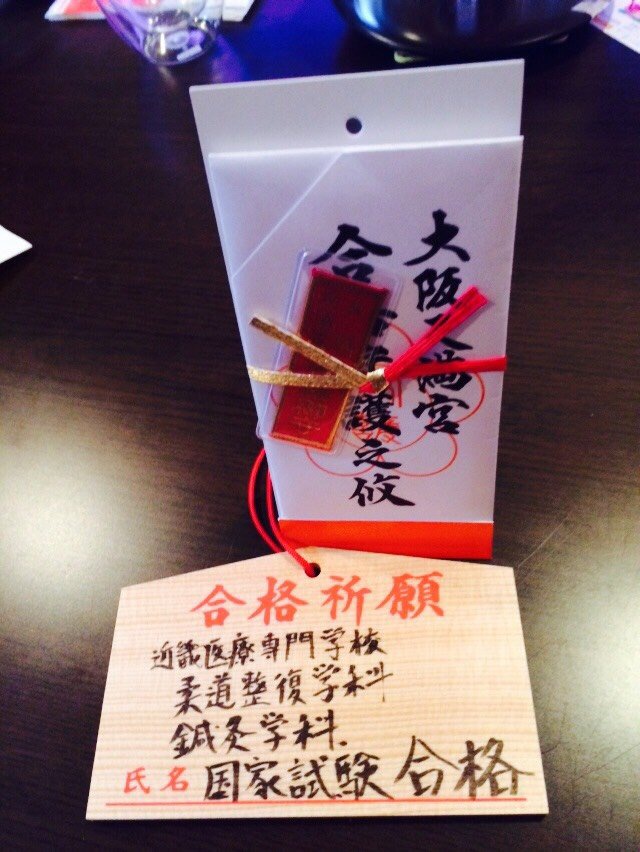 大阪天満宮
合格守護之攸
合格祈願
近畿医療専門学校
柔道整復学科
鍼灸学科
氏名 国家試験合格